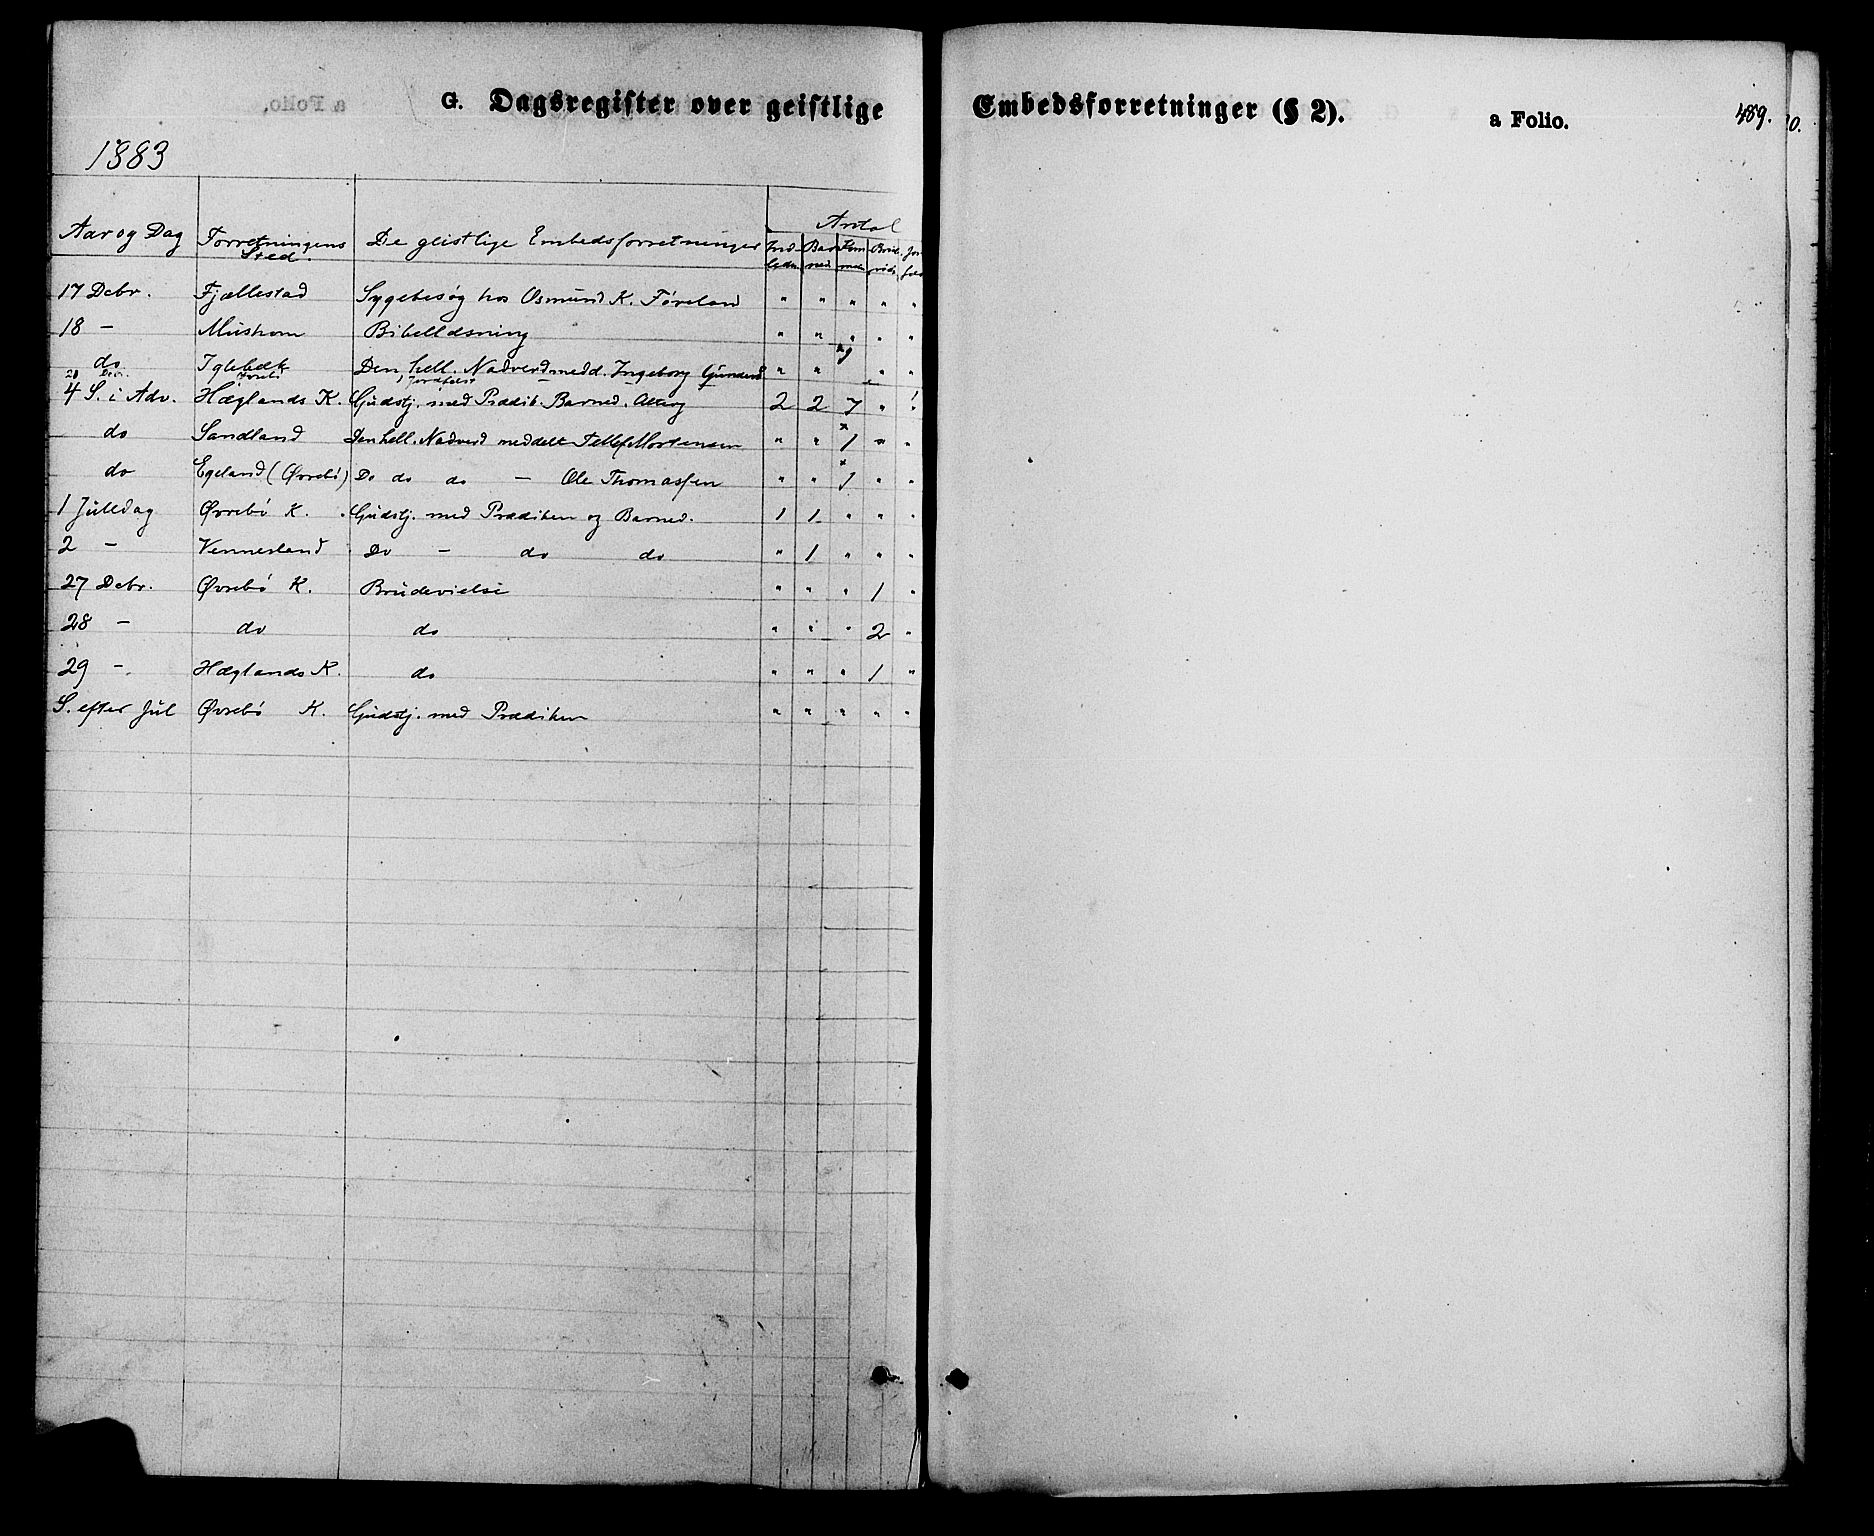 G. Dagsregister over geistlige Embedsforretninger (§ 2). a Folio. 489.
1883
Antal
Aar og Dag Forretningens Sted. De geistlige Embedsforretninger
17 Decbr. Fjællestad Sygebesøg hos Osmund K. Føreland " " " " "
18 - Mushom Bibellæsning " " " " "
do Iglebæk Den hell. Nadverd medd. Ingeborg Gundersd " " x1 " "
4 S. i Adv. Hæglands K. Gudstj. med Prædik. Barned. Alterg 2 2 7 " "
do Sandland Den hell. Nadverd meddelt Tellef Mortensen " " x1 " "
do Egeland (Øvrebö) Do do do - Ole Thomassen " " x1 " "
1 Juledag Øvrebö K. Gudstj. med Prædiken og Barned. 1 1 " " "
2 - Vennesland Do - do do " 1 " " "
27 Decbr. Øvrebö K. Brudevielse " " " 1 "
28 - do do " " " 2 "
29 -. Hæglands K. do " " " 1 "
S. efter Jul Øvrebö K. Gudstj. med Prædiken " " " " "